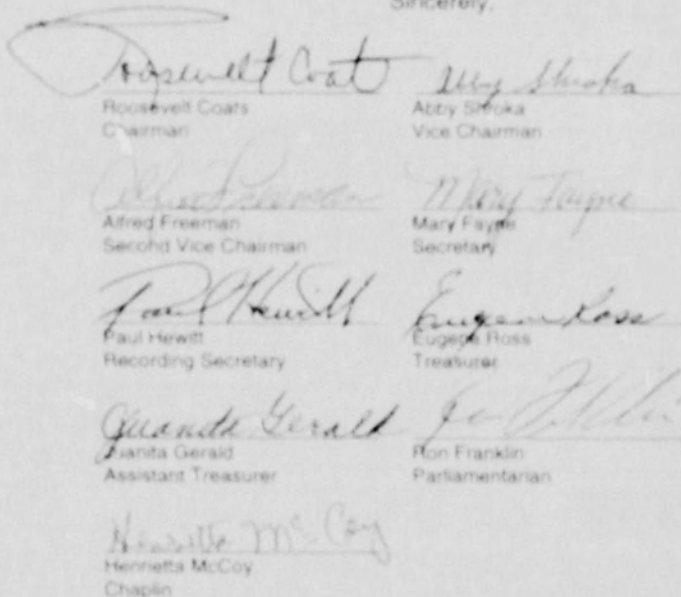 Sincerely,
Roosevelt Coats Abby Shroka
Roosevelt Coats
Chairman
Abby Shroka
Vice Chairman
Alfred Freeman Mary Fayne
Alfred Freeman
Second Vice Chairman
Mary Fayne
Secretary
Paul Hewitt Eugene Ross
Paul Hewitt
Recording Secretary
Eugene Ross
Treasurer
Juanita Gerald
Juanita Gerald
Assistant Treasurer
Ron Franklin
Parliamentarian
Henrietta McCoy
Henrietta McCoy
Chaplin